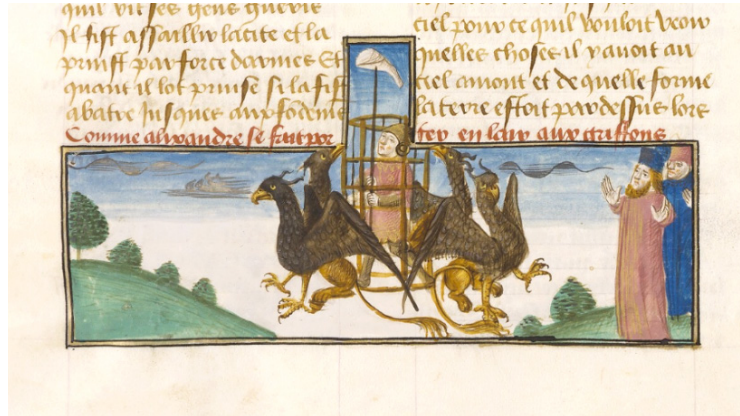 quil vit ses gens gueris
Il fist assaillir la cite et la
prinst par force darmes Et
quant il lot prinse si la fist
abatre Jusques aux fondemens
ciel pour ce quil vouloit veoir
quelles choses il y avoit au
ciel amont et de quelle forme
la terre estoit par dessus lors
Comme alixandre se fait por ter en lair aux griffons